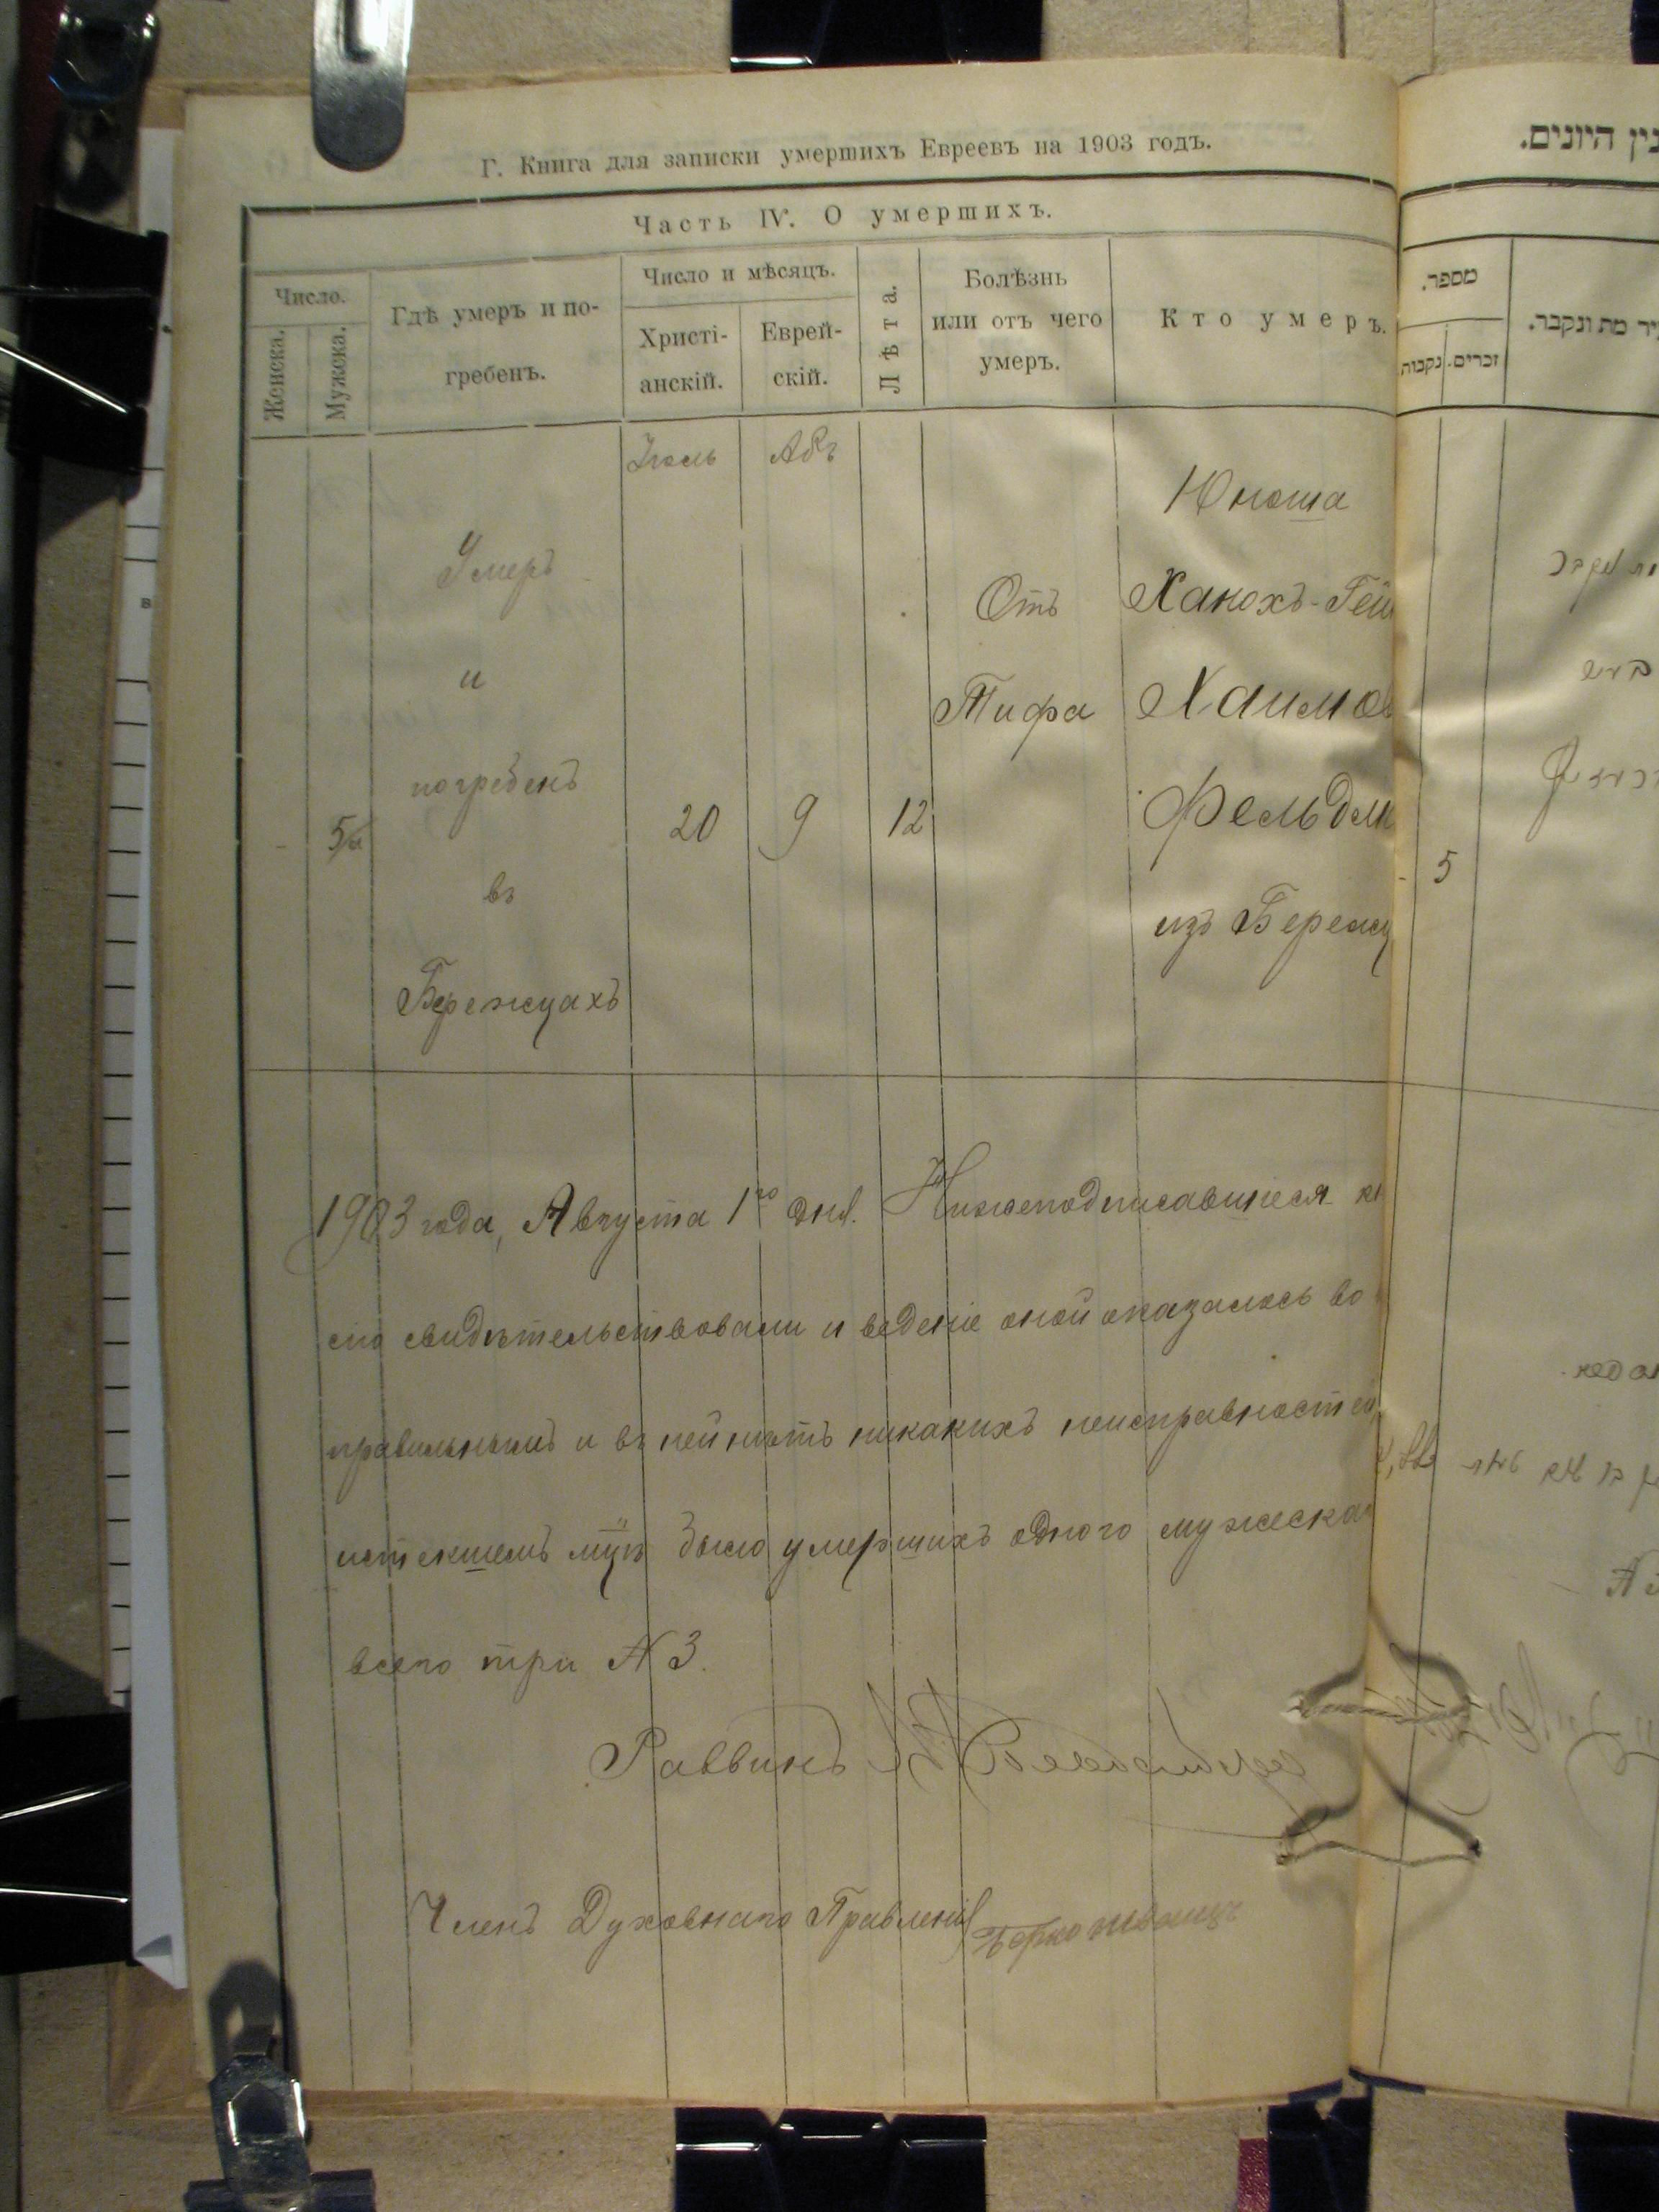 Г. Книга для записки умершихъ Евреевъ на 1903 годъ.
Часть IV. О умершихъ.
Число.
Женска.
Мужска.
Гдѣ умеръ и по-
гребенъ.
Число и мѣсяцъ.
Христі-
анскій.
Еврей-
скій.
Лѣта.
Болѣзнь
или отъ чего
умеръ.
Кто умеръ.
Іюль
Абъ
5
Умеръ
и
погребенъ
въ
Бережцахъ
20
9
12
Отъ
Тифа
Юноша
Ханохъ-Гей
Хаимов
Фельдм
изъ Бережц
1903 года, Августа 1го дня. Нижеподписавшіеся
сію свидѣтельствовали и веденіе оной оказалось во
правильнымъ и въ ней нѣтъ никакихъ неисправностей,
истекшемъ мцѣ было умершихъ одного мужеска
всего три № 3.
Раввинъ
Членъ Духовнаго Правленія
היונים.
מספר.
זכרים.
נקבות
מת ונקבר.
5